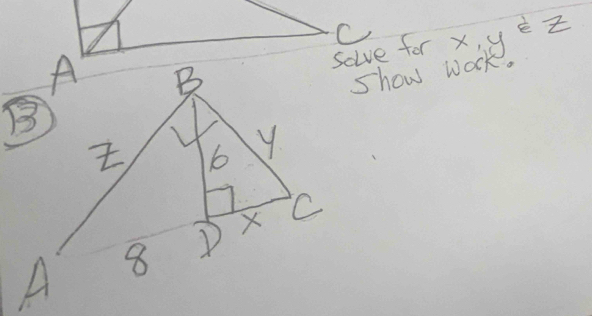 A
C
solve for x, y & z
Show work.
B
B
z
6
y
A
8
D
x
C